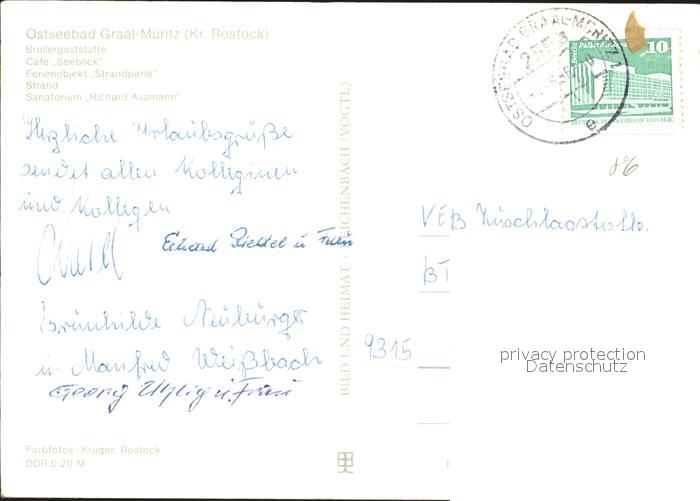 Ostseebad Graal-Müritz (Kr. Rostock)
Broilergaststätte
Café „Seeblick“
Ferienobjekt „Strandperle“
Strand
Sanatorium „Richard Assmann“
Herzliche Urlaubsgrüße
sendet allen Kolleginen
und Kollegen
Erhard u Frau
Brünhilde Neubürger
u Manfred Weißbach
Georg Uhlig u Frau
Farbfotos: Krüger, Rostock
DDR 0,20 M
BILD UND HEIMAT · REICHENBACH (VOGTL)
OSTSEEBAD GRAAL-MÜRITZ 1
e
10
Berlin, Palast
DEUTSCHE DEMOKRATISCHE REPUBLIK
VEB
BT
9315
privacy protection
Datenschutz